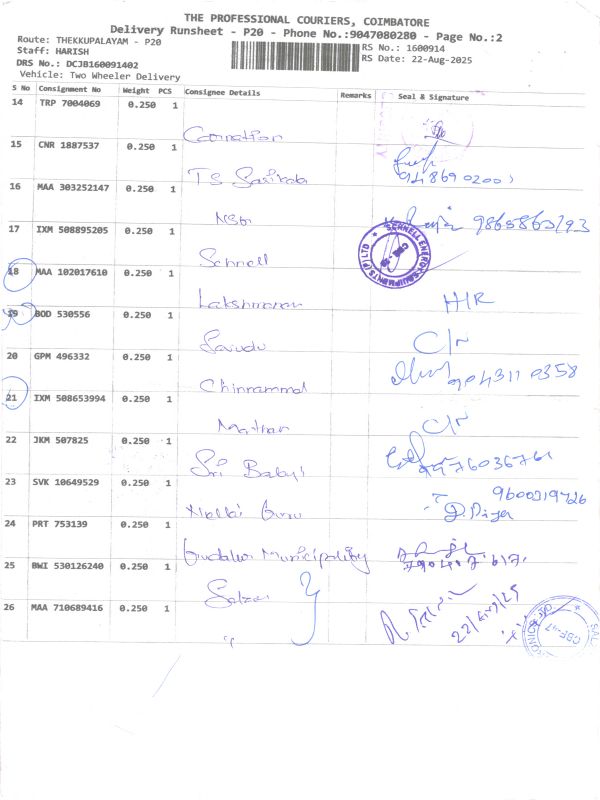 THE PROFESSIONAL COURIERS, COIMBATORE
Delivery Runsheet - P20 - Phone No.:9047080280 - Page No.:2
Route: THEKKUPALAYAM - P20
RS No.: 1600914
Staff: HARISH
RS Date: 22-Aug-2025
DRS No.: DCJB160091402
Vehicle: Two Wheeler Delivery
S No Consignment No Weight PCS Consignee Details Remarks Seal & Signature
14 TRP 7004069 0.250 1
Coronation
15 CNR 1887537 0.250 1
TS
16 MAA 303252147 0.250 1
9865863193
17 IXM 508895205 0.250 1
Schnell
SCHNELL ENERGY EQUIPMENTS (P) LTD
18 MAA 102017610 0.250 1
Lakshmanan
H/R
19 BOD 530556 0.250 1
C/N
20 GPM 496332 0.250 1
Chinnammal
9043110358
21 IXM 508653994 0.250 1
C/N
22 JKM 507825 0.250 1
Sri Babuji
23 SVK 10649529 0.250 1
9600219726
Guru
24 PRT 753139 0.250 1
Gudalur Municipality
25 BWI 530126240 0.250 1
Salzer
26 MAA 710689416 0.250 1
22/Aug/25
"